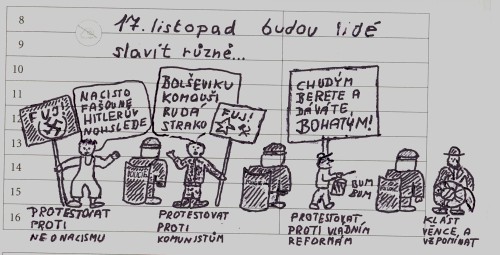 8
9
10
11
12
13
14
15
16
17. listopad budou lidé
slavit různě...
FUJ
NACISTO
FAŠOUNE
HITLERŮV
NOHSLEDE
BOLŠEVIKU
KOMOUŠI
RUDÁ
STRAKO
FUJ!
CHUDÝM
BERETE A
DÁVÁTE
BOHATÝM!
BUM
BUM
PROTESTOVAT
PROTI
NEONACISMU
PROTESTOVAT
PROTI
KOMUNISTŮM
PROTESTOVAT
PROTI VLÁDNÍM
REFORMÁM
KLÁST
VĚNCE, A
VZPOMÍNAT